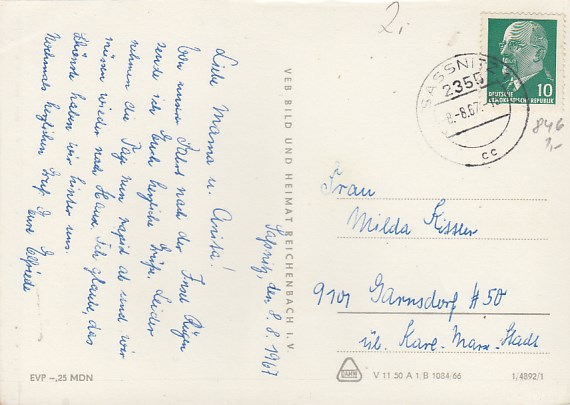 Saßnitz, den 8.8.1967
Liebe Mama u. Anita!
Von unser Fahrt nach der Insel Rügen
sende ich Euch herzliche Grüße. Leider
nehmen die Tage nun rapid ab und wir
müssen wieder nach Haus. Ich glaube, das
Schönste haben wir hinter uns.
Nochmals herzlichen Gruß
Eure Elfriede
VEB BILD UND HEIMAT REICHENBACH I. V.
EVP -,25 MDN
2,-
SASSNITZ
2355
-8.-8.67.-
cc
DEUTSCHE
DEMOKRATISCHE REPUBLIK
10
846
1,-
Frau
Milda Kissler
9101 Garnsdorf #50
üb. Karl-Marx-Stadt
V 11 50 A 1/B 1084/66
1/4892/1